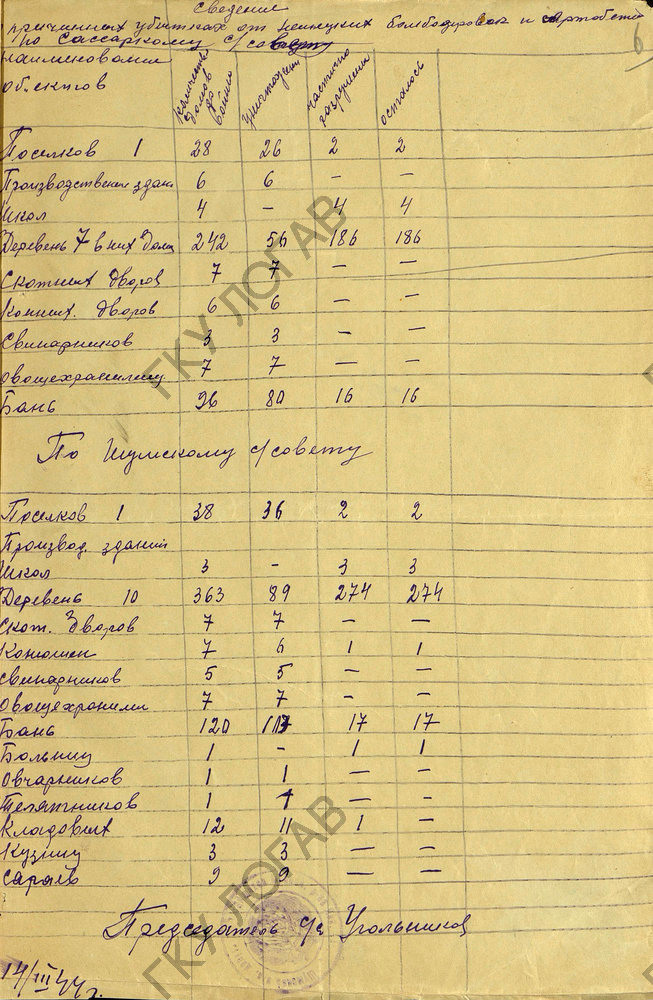 Сведение
причинных убытках от немецких бомбодировок и артобст
по Сассарскому с/совету
6
наименовании объектов | количество домов до войны | уничтожены | частично разрушены | осталось
Поселков 1 28 26 2 2
Производственн здани 6 6 — —
Школ 4 — 4 4
Деревень 7 в них Дома 242 56 186 186
Скотных Дворов 7 7 — —
Конных. Дворов 6 6 — —
Свинарников 3 3 — —
Овощехранилищ 7 7 — —
Бань 96 80 16 16
По Шумскому с/совету
Поселков 1 38 36 2 2
Производ. зданий
Школ 3 - 3 3
Деревень 10 363 89 274 274
Скот. Дворов 7 7 — —
Конюшен 7 6 1 1
Свинарников 5 5 — —
Овощехранили 7 7 - —
Бань 120 17 17
Больниц 1 - 1 1
Овчарников 1 1 — —
Телятников 1 1 — -
Кладовых 12 11 1 -
Кузниц 3 3 — —
Сараев 9 9 — —
Председатель с/с Угольников
14/III 44 г.
ГКУ ЛОГАВ
ГКУ ЛОГАВ
ГКУ ЛОГАВ